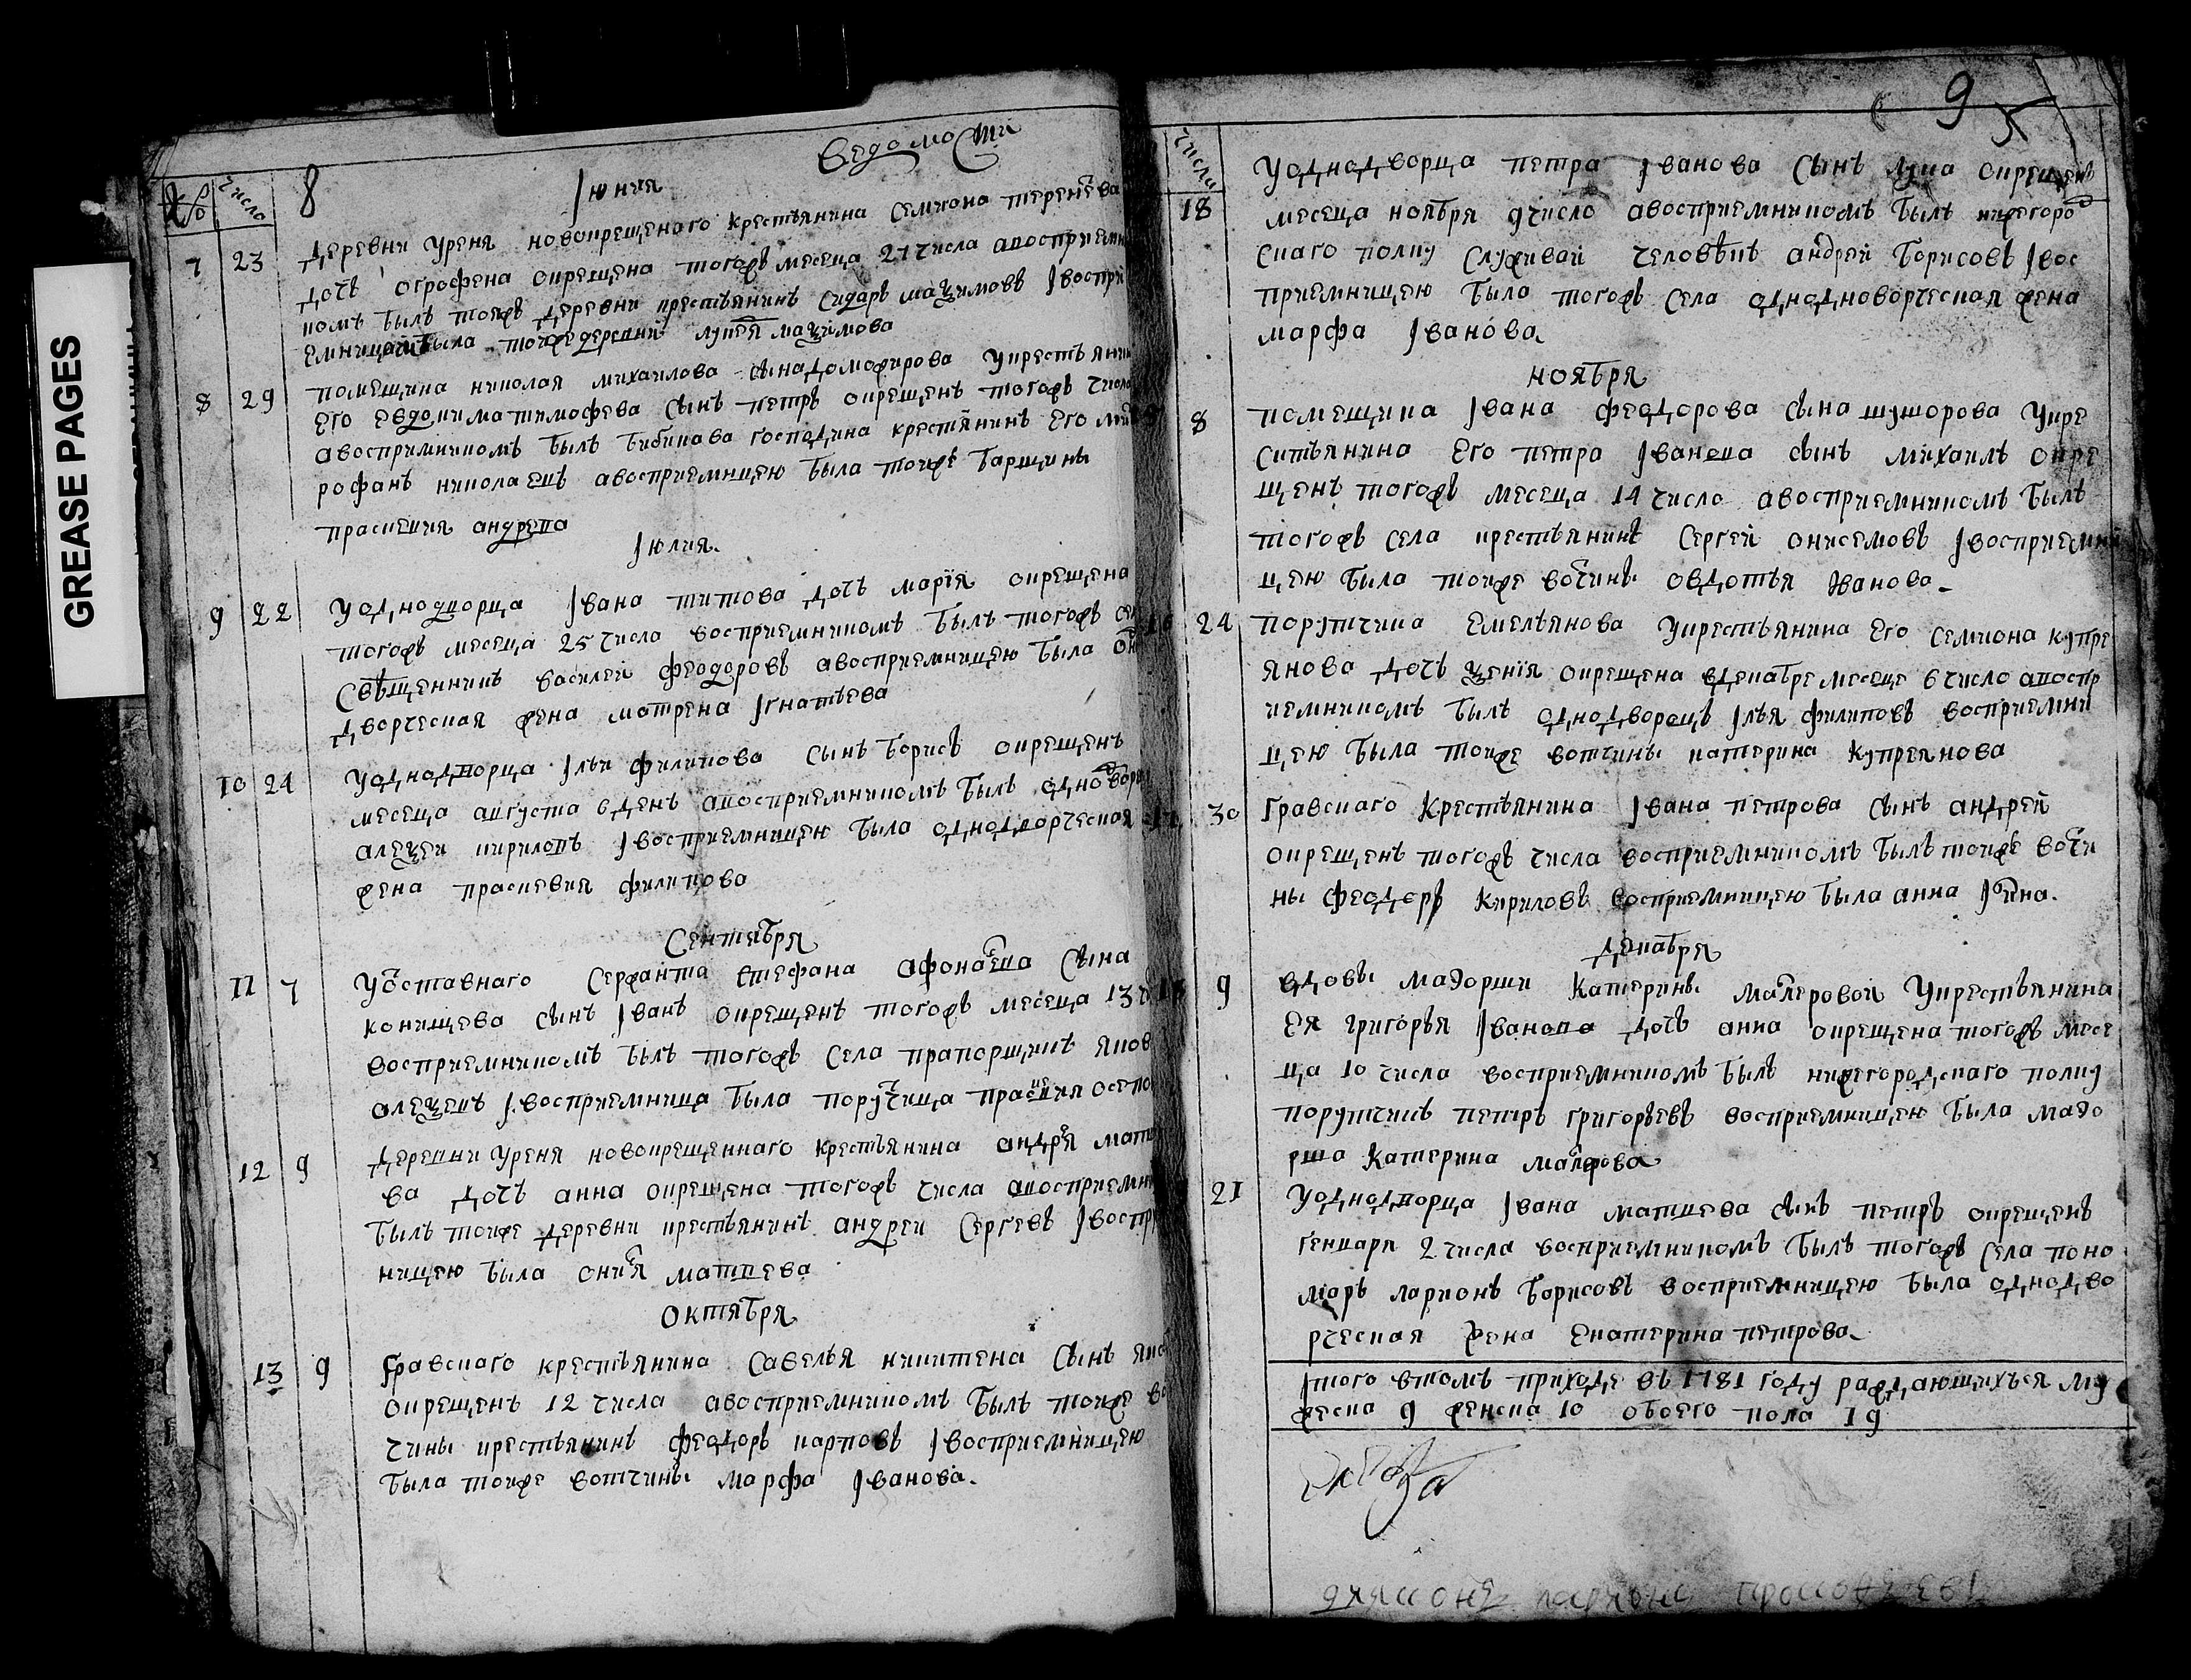 GREASE PAGES
Ведомости
число
8
Июния
7 23 деревни Уреня новокрещенаго крестьянина Семиона Терентева
дочь Огрофена окрещена тогожъ месеца 27 числа авосприемни
комъ былъ тояжъ деревни крестьянинъ Сидаръ Маѯимовъ Iвоспри
емницею была тоижедеревни Лукея Маѯимова
8 29 помещика николая михаилова сына доможирова укрестьянин
Его Евдокима тимофева сынъ петръ окрещенъ тогожъ числа
авосприемникомъ былъ бибикава господина крестянинъ Его
рофанъ николаевъ авосприемницею была тоиже барщины
праскевия андрева
Iюлия
9 22 Уоднодворца Iвана титова дочь марїя окрещена
тогожъ месеца 25 числа восприемникомъ былъ тогожъ сел
Священникъ василей феодоровъ авосприемницею была
дворческая жена мотрена Iгнатьева
10 24 Уоднодворца Iльи филипова сынъ борисъ окрещенъ
месеца августа 6 день авосприемникомъ былъ одноворе
алеѯеи кириловъ Iвосприемницею была однодворческая
жена праскевия филипова
Сентября
11 7 Уоставнаго Сержанта Стефана афонасева Сына
конищева сынъ Iванъ окрещенъ тогожъ месеца 13
восприемникомъ былъ тогожъ Села прапорщикъ яков
олеѯевъ Iвосприемница была поручица праскевия осепо
12 9 деревни Уреня новокрещеннаго крестьянина андрея мате
ва дочь анна окрещена тогожъ числа авосприемни
былъ тоиже деревни крестьянинъ андреи Сергевъ Iвоспри
ницею была матвева
октября
13 9 Гравскаго крестьянина Савелья никитена Сынъ яко
окрещенъ 12 числа авосприемникомъ былъ тоиже во
чины крестьянинъ феодоръ карповъ Iвосприемницею
была тоиже вотчины марфа Iванова.
9
числа
18 Уоднодворца петра Iванова Сынъ лука окрещенъ
месеца ноября 9 число авосприемникомъ былъ нижегоро
скаго полку Служивай человѣкъ андрей борисовъ Iвос
приемницею была тогожъ Села одноднворческая жена
марфа Iванова
ноября
8 помещика Iвана феодорова сына шушорова Укре
ситьянина Его петра Iванова сынъ михаилъ окре
щенъ тогожъ месеца 14 число авосприемникомъ былъ
тогожъ села крестьянинъ Сергей онисемовъ Iвосприемни
цею была тоиже вочины овдотья Iванова
24 порутчика Емельянова Укрестьянина Его Семиона купре
янова дочь ѯенія окрещена вдекабре месеце 6 число авоспр
иемникомъ былъ однодворецъ Iлья филиповъ восприемни
цею была тоиже вотчины катерина купреянова
30 Гравскаго Крестьянина Iвана петрова Сынъ андрей
окрещенъ тогожъ числа восприемникомъ былъ тоиже вотчи
ны феодеръ Кириловъ восприемницею была анна
декабря
9 вдовы маэорши Катерины Укрестьянина
Ея григорья Iванова дочь анна окрещена тогожъ месе
ца 10 числа восприемникомъ былъ нижегородскаго полку
порутчикъ петръ григорьевъ восприемницею была маэо
рша Катерина
21 Уоднодворца Iвана матвева сынъ петръ окрещенъ
генваря 2 числа восприемникомъ былъ тогожъ Села поно
марь ларионъ борисовъ восприемницею была однодво
рческая жена Екатерина петрова
Iтого втомъ приходе въ 1781 году раждающихъся му
жеска 9 женска 10 обоего пола 19